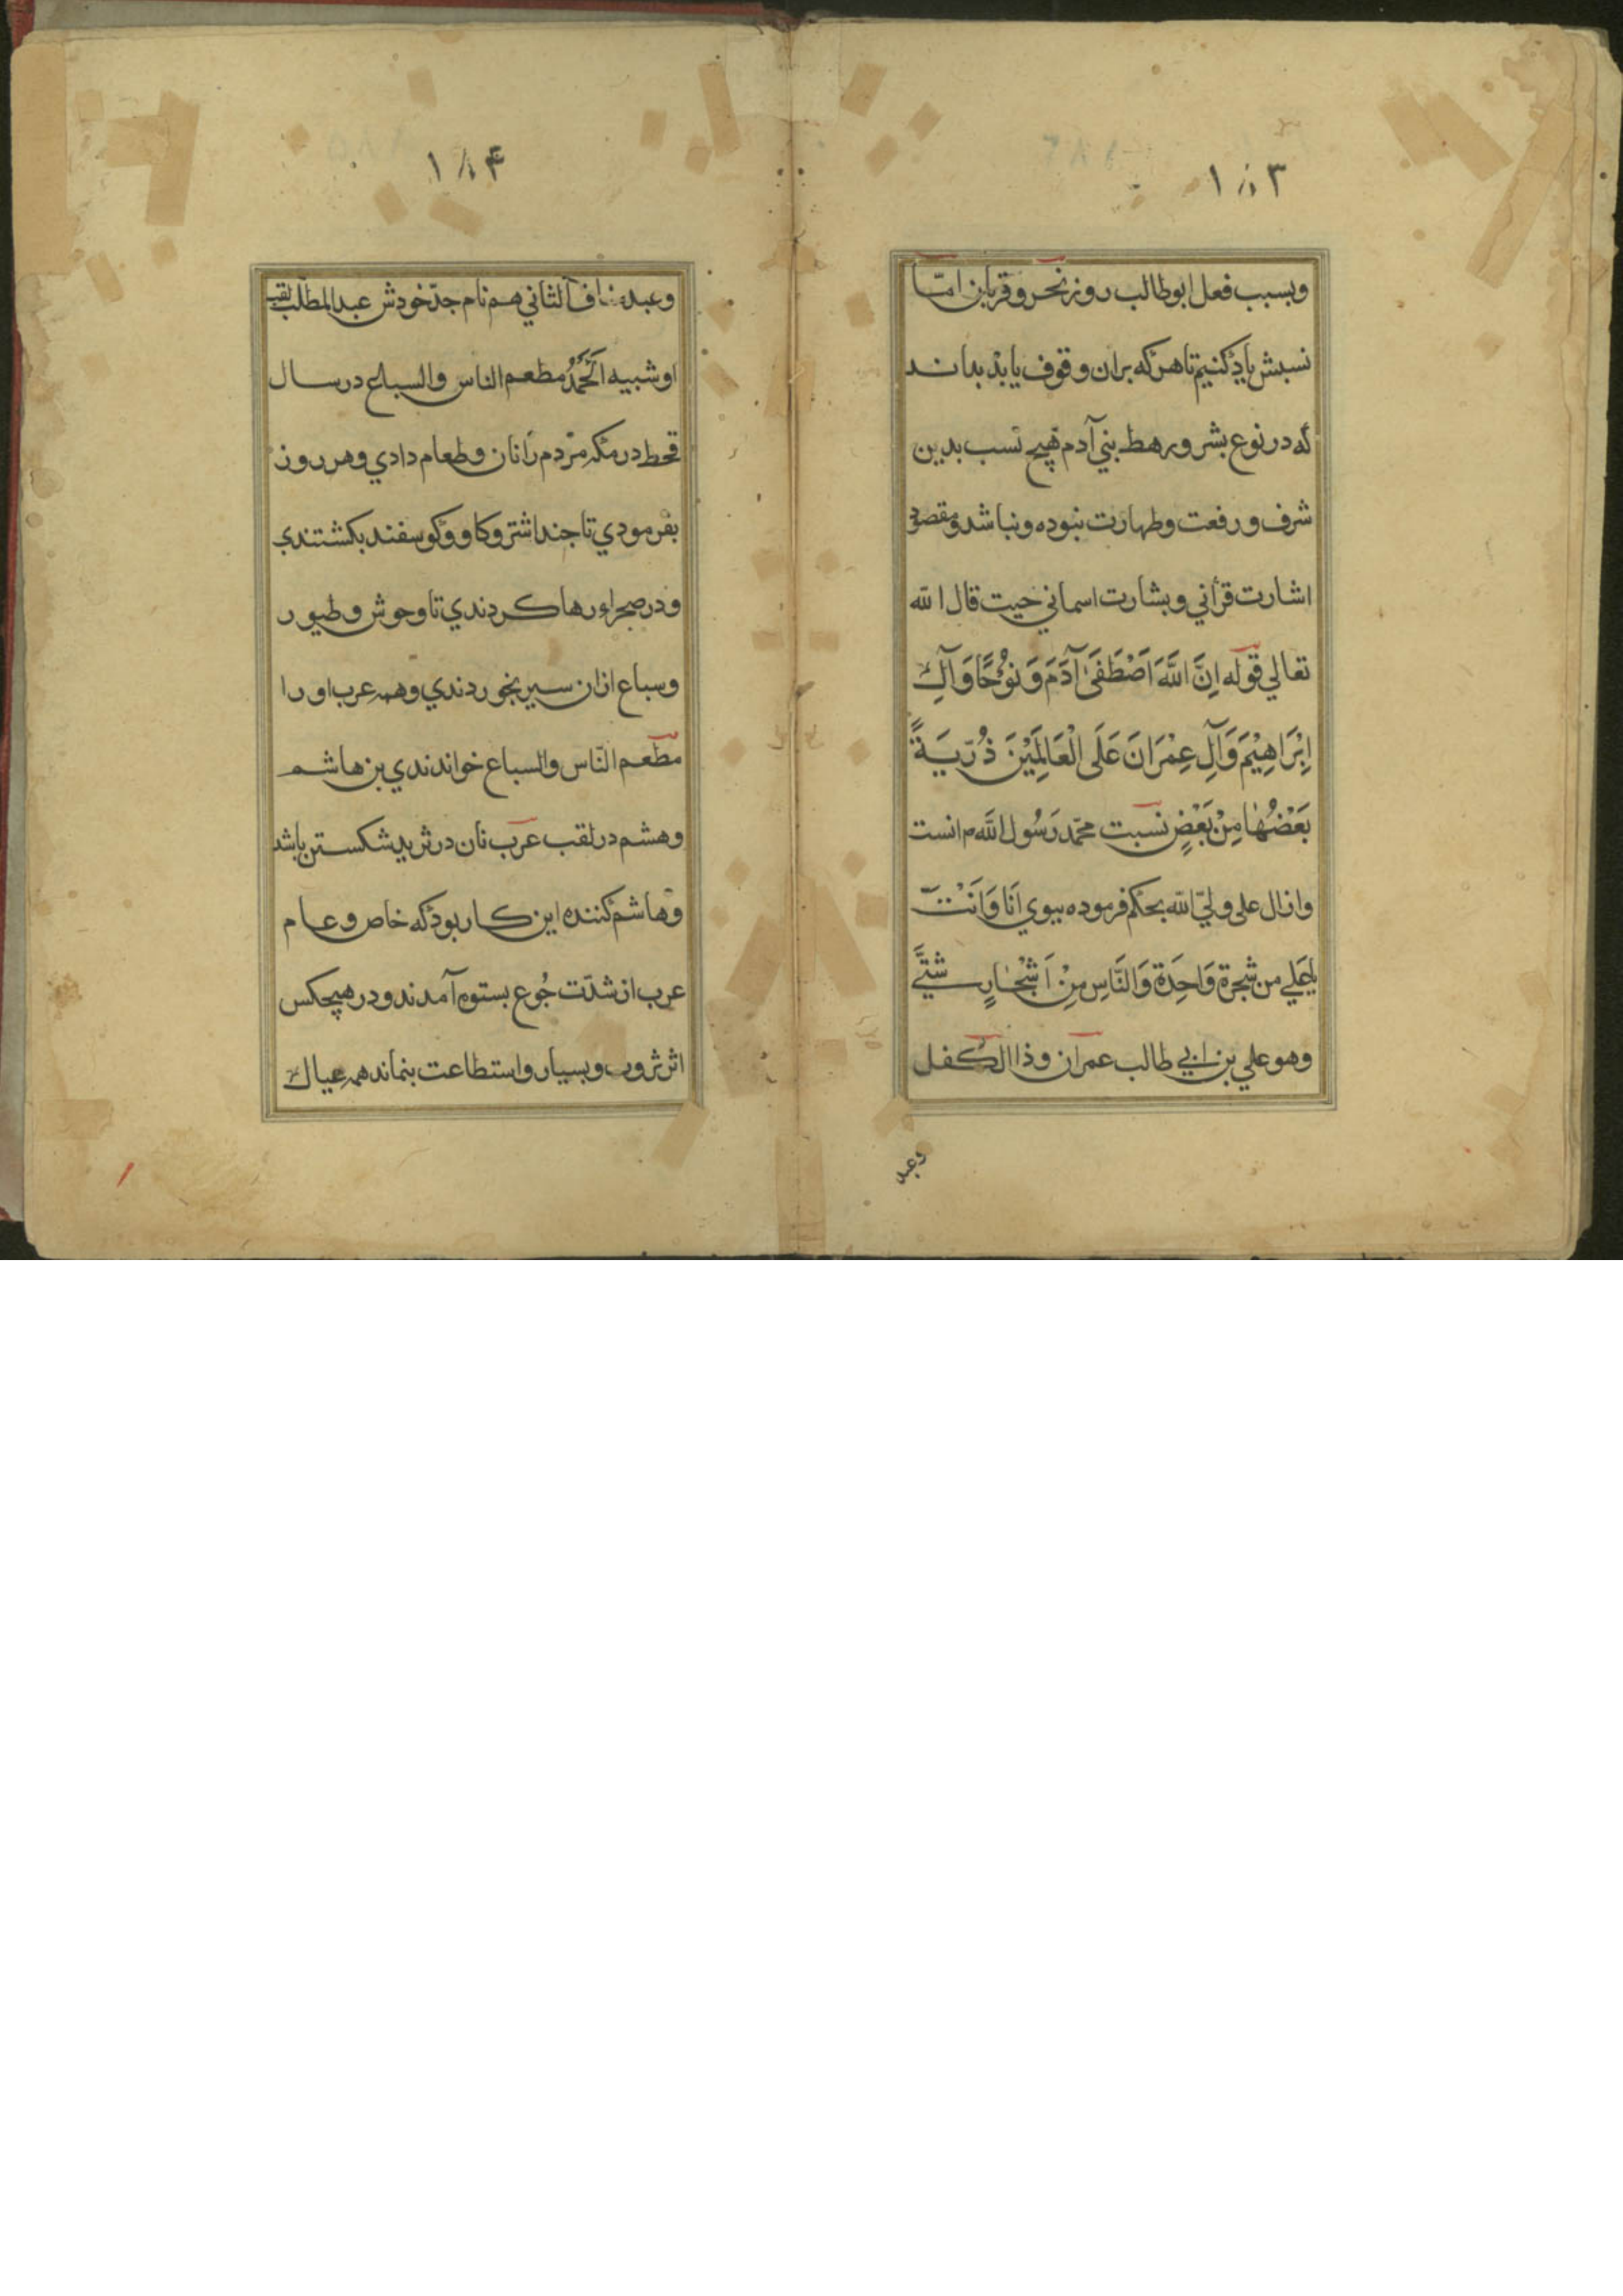 ١٨٣
وبسبب فعل ابوطالب روز نحر و قربان امّا
نسبش یاد کنیم تا هرکه بران وقوف یابد بداند
که در نوع بشر و رهط بني آدم هیچ نسب بدین
شرف و رفعت و طهارت نبوده و نباشد و مقصود
اشارت قرآني و بشارت اسماني حیت قال الله
تعالي قوله اِنَّ اللَّهَ اَصْطَفَىٰ آدَمَ وَ نُوْحًا وَ آلَ
اِبْرَاهِیْمَ وَ آلِ عِمْرَانَ عَلَى الْعَالَمِیْنَ ذُرِّیَةً
بَعْضُهَا مِنْ بَعْضٍ نسبت محمّد رَسُول اللَّه م انست
وازال علی وليّ الله بحکم فرموده بیوي اَنَا وَ اَنْتَ
یا عَلي من شجرة وَاحِدَة وَ النَّاسِ مِنْ اَشْجَارٍ شتّي
وهو علي بن ابي طالب عمران و ذا الکفل
وعبد
١٨۴
وعبدمناف الثاني هم نام جدّ خودش عبدالمطلّب لقب
او شیبه الحَمْدُ مطعم الناس والسباع در سال
قحط در مکه مردم را نان و طعام دادي و هر روز
بفرمودي تا جند اشتر و کاو و کوسفند بکشتندي
و در صحراء رها کردندي تا وحوش و طیور
و سباع ازان سیر بخوردندي و همه عرب او را
مطعم النّاس والسباع خواندندي بن هاشم
وهشم در لقب عرب نان در ثرید شکستن باشد
و هاشم کننده این کار بود که خاص و عام
عرب از شدّت جُوع بستوه آمدند و در هیچکس
اثر ثروت و بسیار و استطاعت بنماند همه عیال